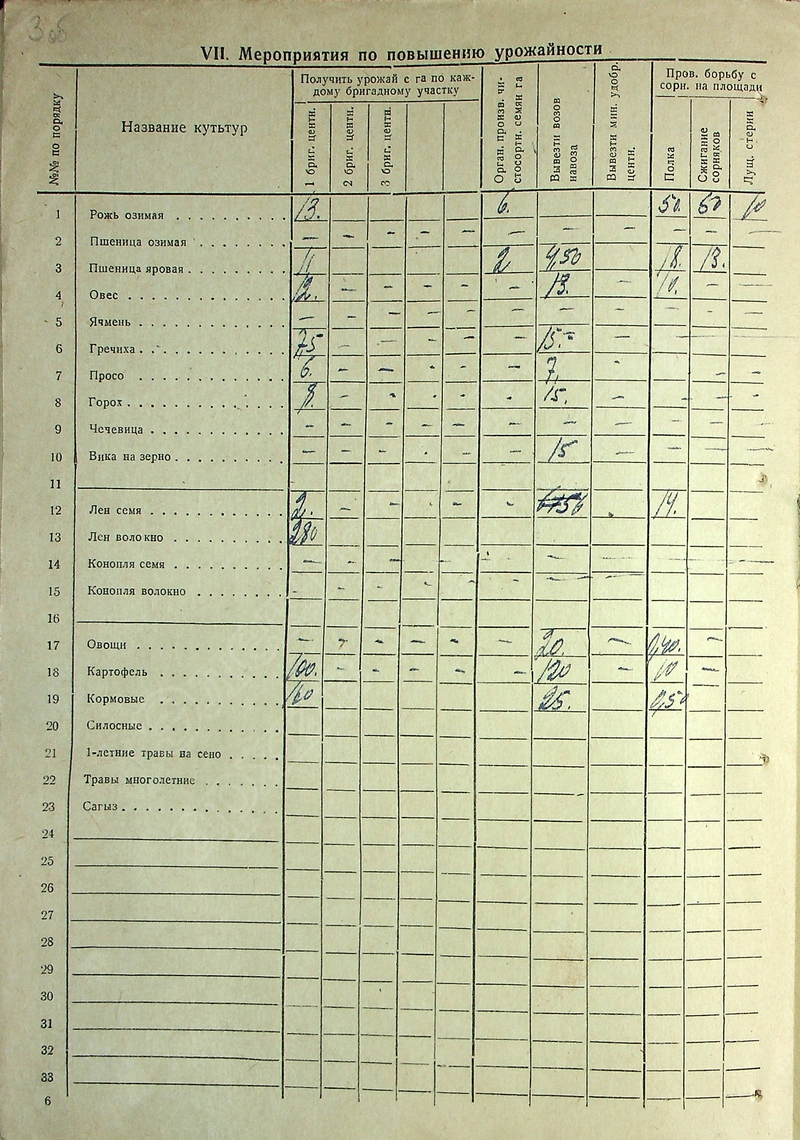 VII. Мероприятия по повышению урожайности
№№ по порядку
Название кутьтур
Получить урожай с га по каж-
дому бригадному участку
1 бриг. центн.
2 бриг. центн.
3 бриг. центн.
Орган. произв. чи-
стосортн. семян га
Вывезти возов
навоза
Вывезти мин. удобр.
центн.
Пров. борьбу с
сорн. на площади
Полка
Сжигание
сорняков
Лущ. стерни
1 Рожь озимая 13. 6. 10
2 Пшеница озимая — — — — — — — — — —
3 Пшеница яровая 11 2 450 18. 13.
4 Овес 12. — — — — — 13. — 10. —
5 Ячмень — — — — — — — — — —
6 Гречиха 7,5 — — — — — 15. — —
7 Просо 6. — — — — — 7. — — —
8 Горох 8. — — — — — 15. — — — —
9 Чечевица — — — — — — — — — —
10 Вика на зерно — — — — — — 15 — — — —
11
12 Лен семя 2. — — — — — 14.
13 Лен волокно 280
14 Конопля семя — — — —
15 Конопля волокно — — — — — — — —
16
17 Овощи — — — — — — 20. — 0,40. —
18 Картофель 100. — — — — — 120 — 10 —
19 Кормовые 160 25. 0,50
20 Силосные
21 1-летние травы на сено
22 Травы многолетние
23 Сагыз
24
25
26
27
28
29
30
31
32
33
6